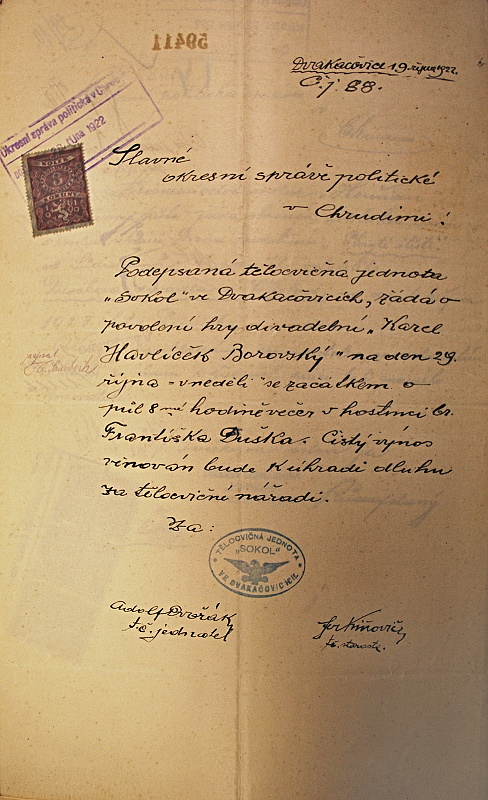 59411
Dvakačovice 19. října 1922.
Č. j. 88.
Okresní správa politická v
října 1922
KOLEK
5
KORUNY
Slavné
okresní správě politické
v Chrudimi!
Podepsaná tělocvičná jednota
„Sokol" ve Dvakačovicích, žádá o
povolení hry divadelní „Karel
Havlíček Borovský" na den 29.
října - v neděli se začátkem o
půl 8mé hodině večer v hostinci br.
Františka Duška. Čistý výnos
věnován bude k úhradě dluhu
za tělocvičné nářadí.
Za:
TĚLOCVIČNÁ JEDNOTA
„SOKOL"
VE DVAKAČOVICÍCH
Adolf Dvořák
t. č. jednatel
t. č. starosta.